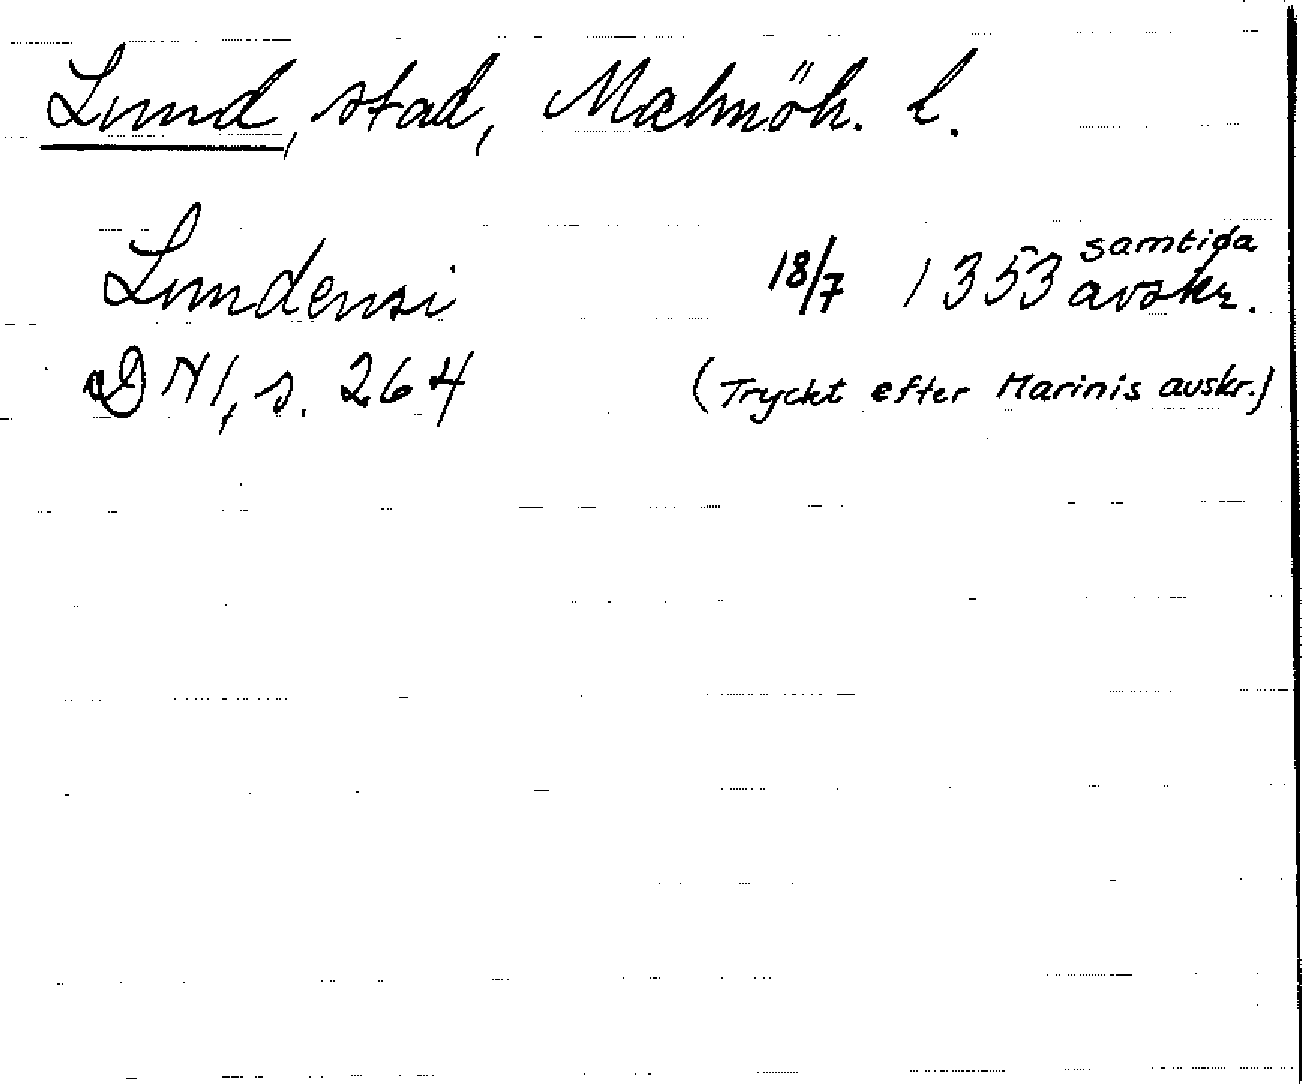 Lund, stad, Malmöh. l.
Lundensi 18/7 1353 samtida avskr.
DN 1, s. 264 (Tryckt efter Marinis avskr.)